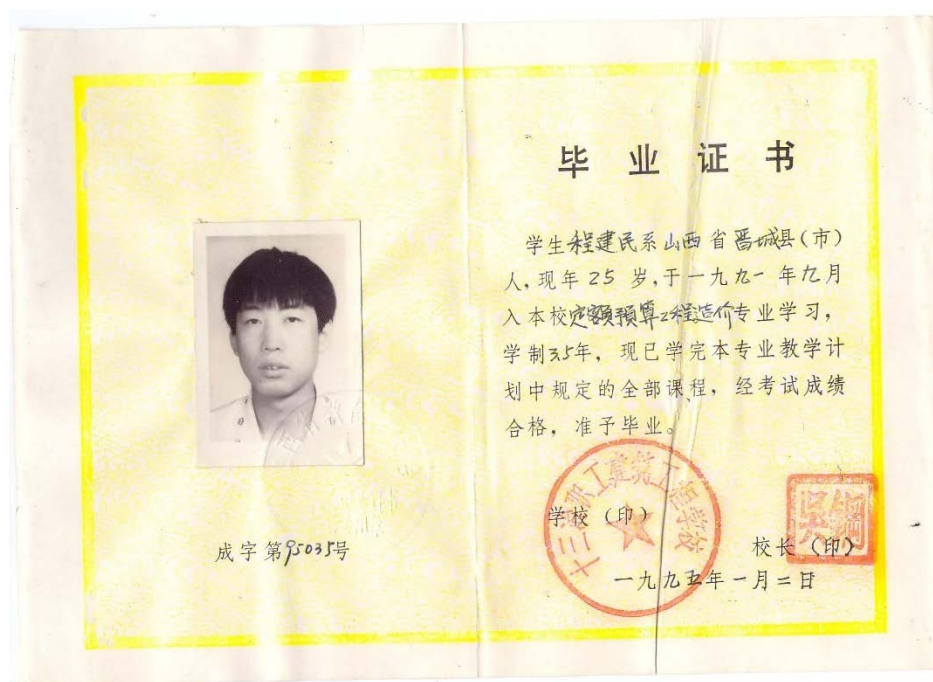 毕业证书
学生程建民系山西省晋城县(市)
人,现年25岁,于一九九一年九月
入本校定额预算工程造价专业学习,
学制3.5年,现已学完本专业教学计
划中规定的全部课程,经考试成绩
合格,准予毕业。
学校(印)
校长(印)
一九九五年一月二日
成字第95035号